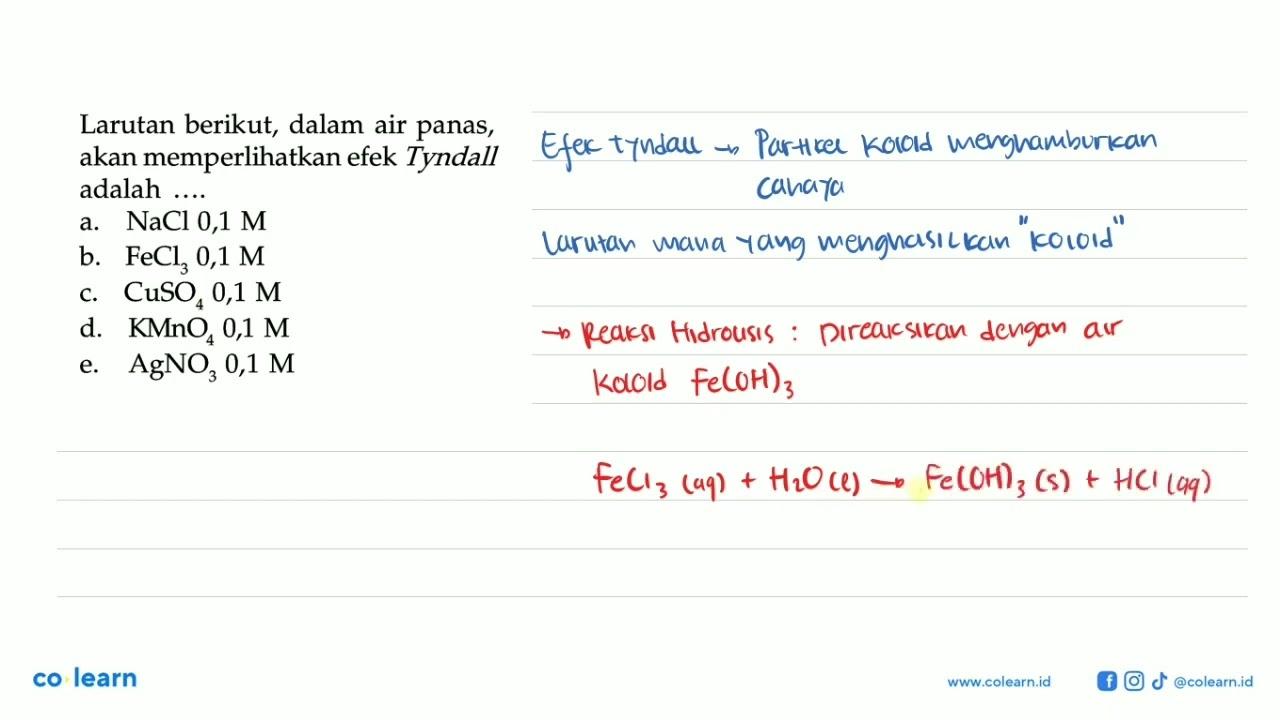 Larutan berikut, dalam air panas,
akan memperlihatkan efek Tyndall
adalah ....
a. NaCl 0,1 M
b. FeCl₃ 0,1 M
c. CuSO₄ 0,1 M
d. KMnO₄ 0,1 M
e. AgNO₃ 0,1 M
Efek tyndall → Partikel koloid menghamburkan
cahaya
Larutan mana yang menghasilkan "koloid"
→ Reaksi Hidrolisis : Direaksikan dengan air
koloid Fe(OH)₃
FeCl₃ (aq) + H₂O (l) → Fe(OH)₃ (s) + HCl (aq)
co learn
www.colearn.id
@colearn.id